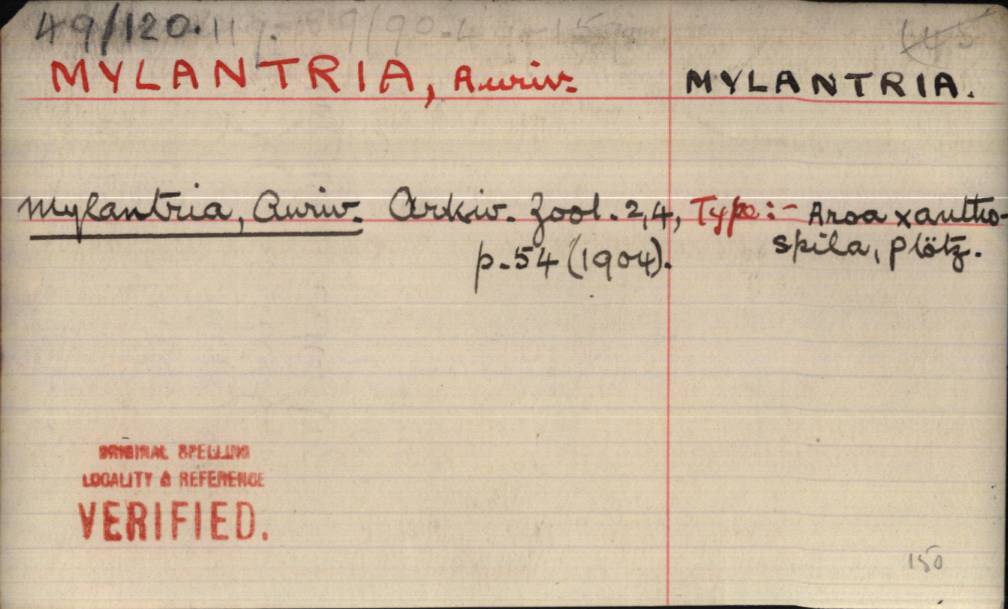 49/120.
MYLANTRIA, Auriv. MYLANTRIA.
Mylantria, Auriv. Arkiv. Zool. 2,4, Type:- Aroa xantho-
p.54 (1904). spila, Plötz.
ORIGINAL SPELLING
LOCALITY & REFERENCE
VERIFIED.
150